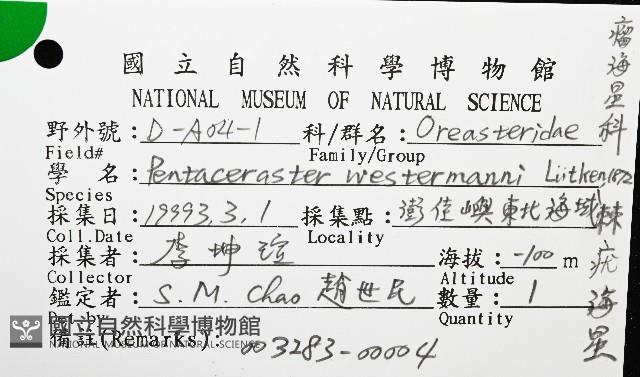 國立自然科學博物館
NATIONAL MUSEUM OF NATURAL SCIENCE
野外號：D-A04-1 科/群名：Oreasteridae
Field# Family/Group
學 名：Pentaceraster westermanni Lütken, 1872
Species
採集日：19993.3.1 採集點：澎佳嶼東北海域
Coll.Date Locality
採集者：李坤瑄 海拔：-100 m
Collector Altitude
鑑定者：S.M. Chao 趙世民 數量：1
Det.by Quantity
備註(Remarks)：003283-00004
瘤海星科
棘疣海星
國立自然科學博物館
NATIONAL MUSEUM OF NATURAL SCIENCE